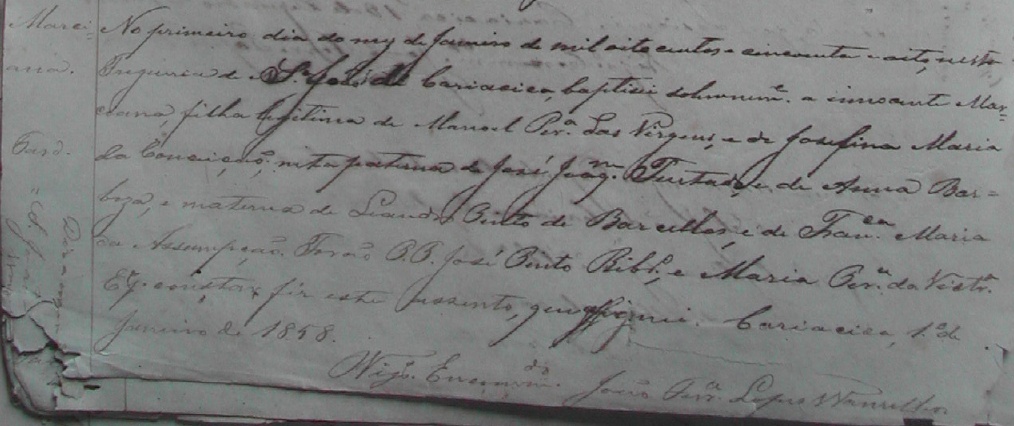 Marci-
anna.
Pard.
No primeiro dia do mez de Janeiro de mil oito centos e cincoenta e oito, nesta
Freguesia de S. João de Cariacica, baptisei solemnem.e a innocente Mar-
ciana filha legitima de Manoel Per.a das Virgens, e de Josefina Maria
da Conceição; neta paterna de José Joaq.m Furtado, e de Anna Bar-
boza, e materna de Leandro Pinto de Barcellos, e de Fran.ca Maria
da Assumpção. Forão P.P. José Pinto Rib.o, e Maria Per.a da Vict.a
E p.a constar fiz este assento, que assignei. Cariacica, 1.o de
Janeiro de 1858.
Vig.o Encomm.do João Ferr.a Lopes Wanzeller